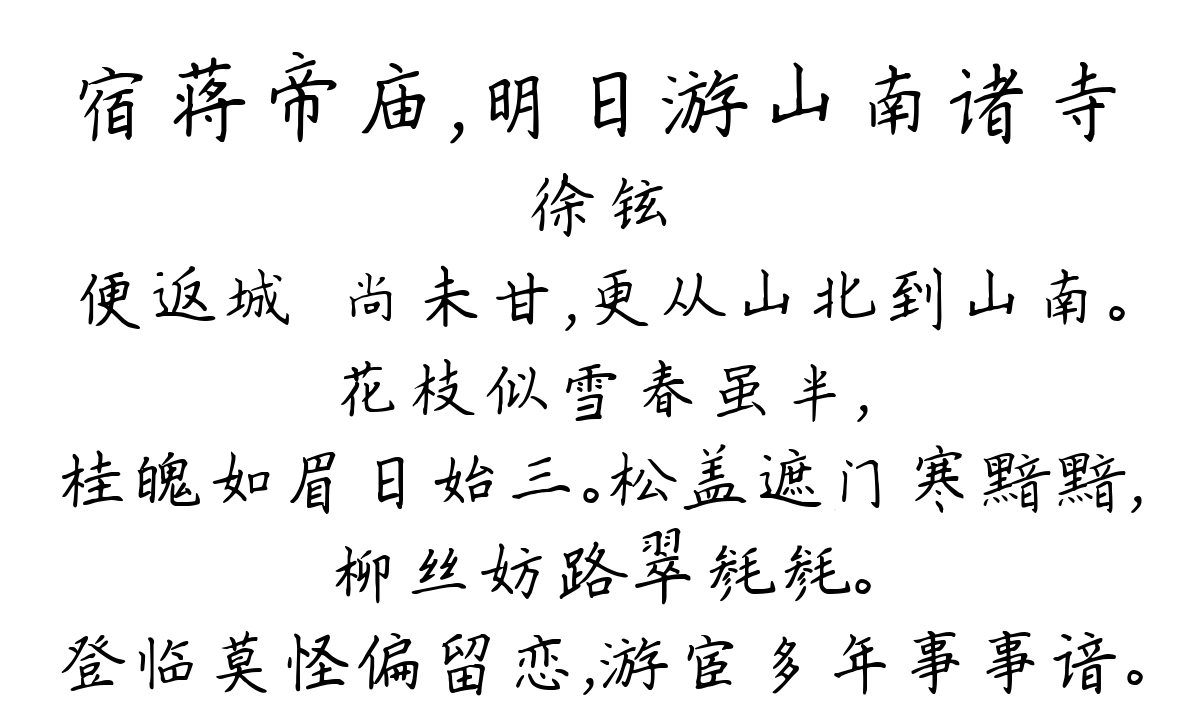 宿蒋帝庙,明日游山南诸寺
徐铉
便返城 尚未甘,更从山北到山南。
花枝似雪春虽半,
桂魄如眉日始三。松盖遮门寒黯黯,
柳丝妨路翠毵毵。
登临莫怪偏留恋,游宦多年事事谙。